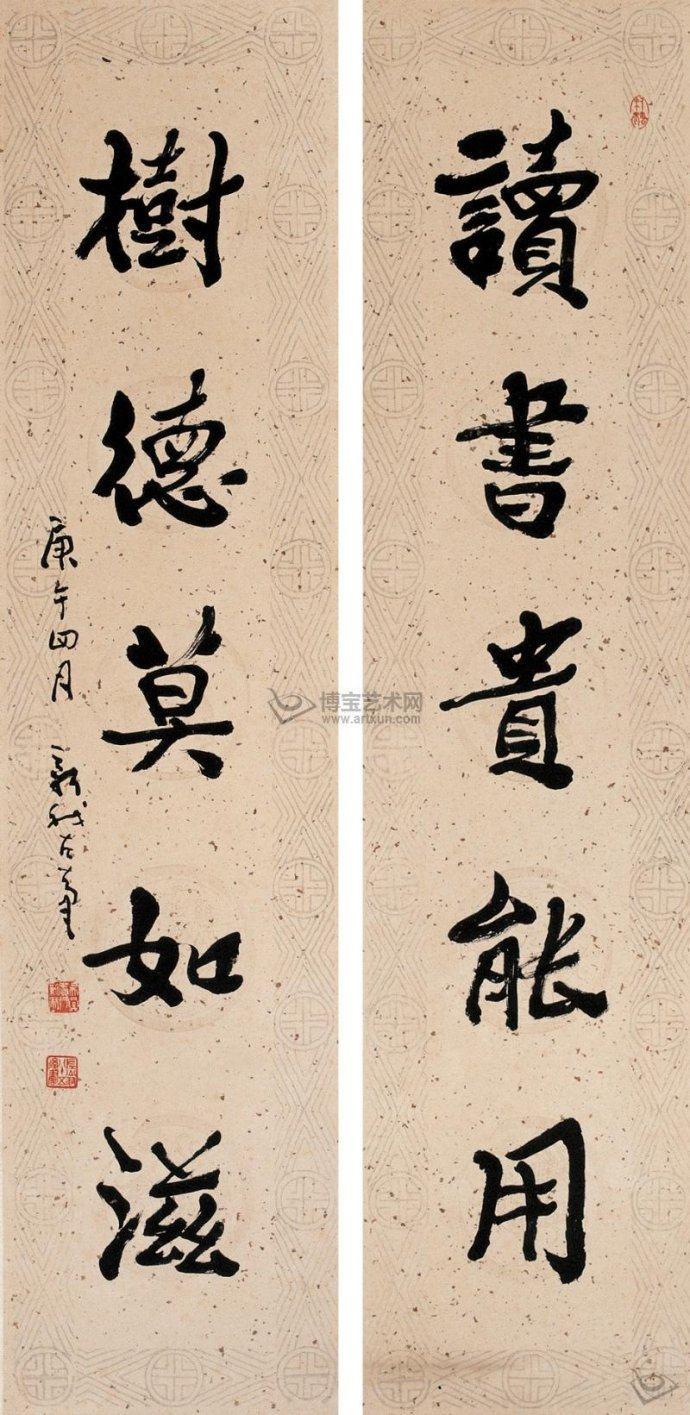 讀書貴能用
樹德莫如滋
庚午四月
博宝艺术网
www.artxun.com